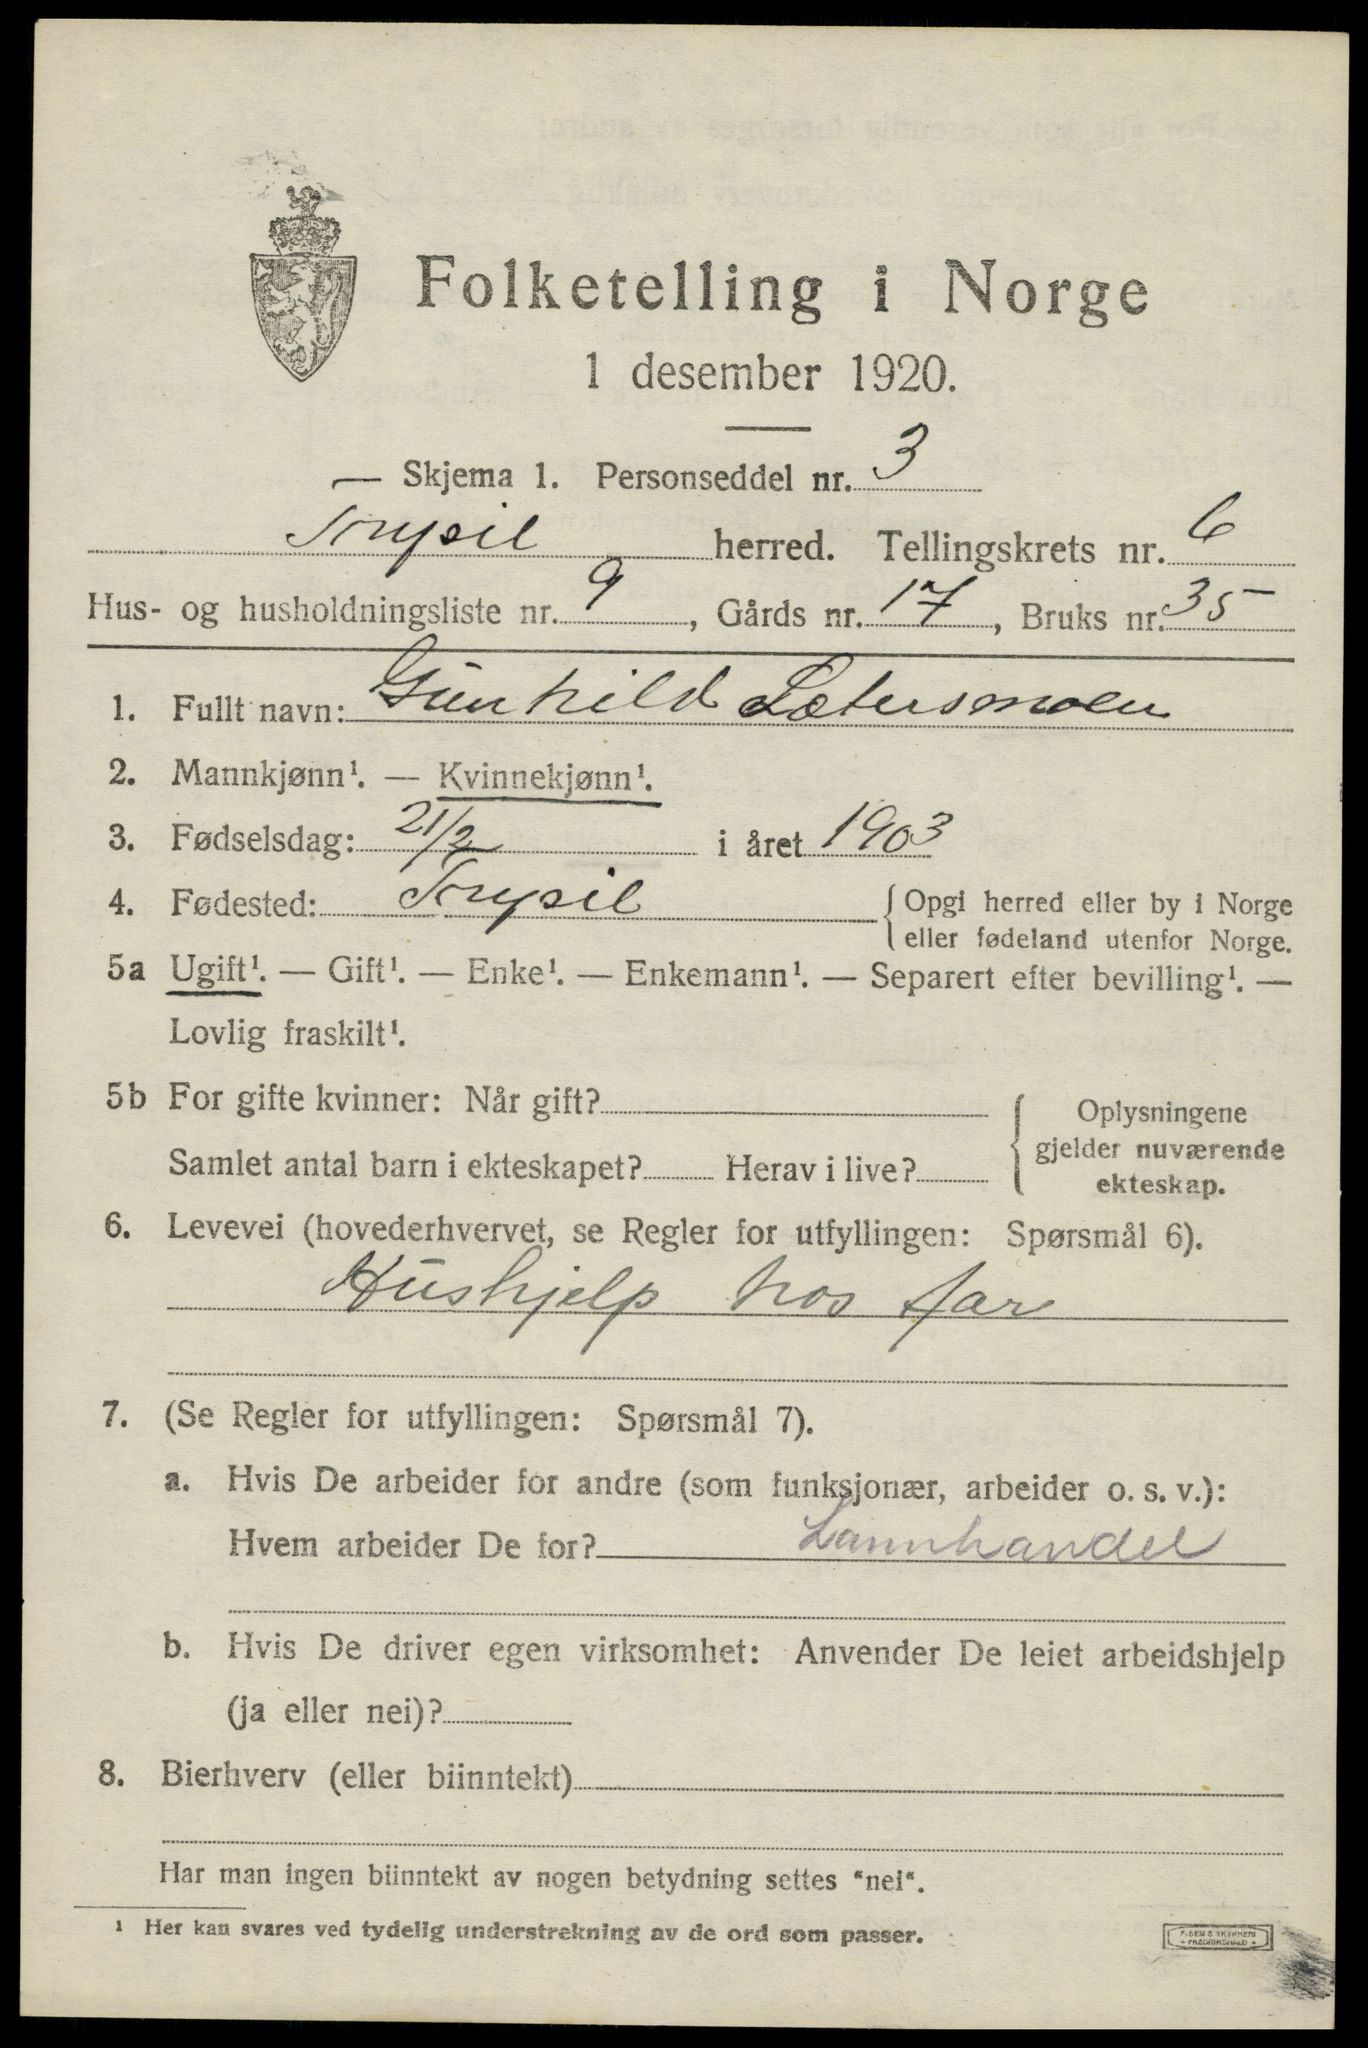 Folketelling i Norge
1 desember 1920.
— Skjema 1. Personseddel nr. 3
Trysil herred. Tellingskrets nr. 6
Hus- og husholdningsliste nr. 9, Gårds nr. 17, Bruks nr. 35
1. Fullt navn: Gunhild Sætersmoen
2. Mannkjønn¹. — Kvinnekjønn¹.
3. Fødselsdag: 21/2 i året 1903
4. Fødested: Trysil { Opgi herred eller by i Norge
eller fødeland utenfor Norge.
5a Ugift¹. — Gift¹. — Enke¹. — Enkemann¹. — Separert efter bevilling¹. —
Lovlig fraskilt¹.
5b For gifte kvinner: Når gift?
Samlet antal barn i ekteskapet? Herav i live?
Oplysningene
gjelder nuværende
ekteskap.
6. Levevei (hovederhvervet, se Regler for utfyllingen: Spørsmål 6).
Hushjelp hos far
7. (Se Regler for utfyllingen: Spørsmål 7).
a. Hvis De arbeider for andre (som funksjonær, arbeider o. s. v.):
Hvem arbeider De for? Lannhandel
b. Hvis De driver egen virksomhet: Anvender De leiet arbeidshjelp
(ja eller nei)?
8. Bierhverv (eller biinntekt)
Har man ingen biinntekt av nogen betydning settes "nei".
¹ Her kan svares ved tydelig understrekning av de ord som passer.